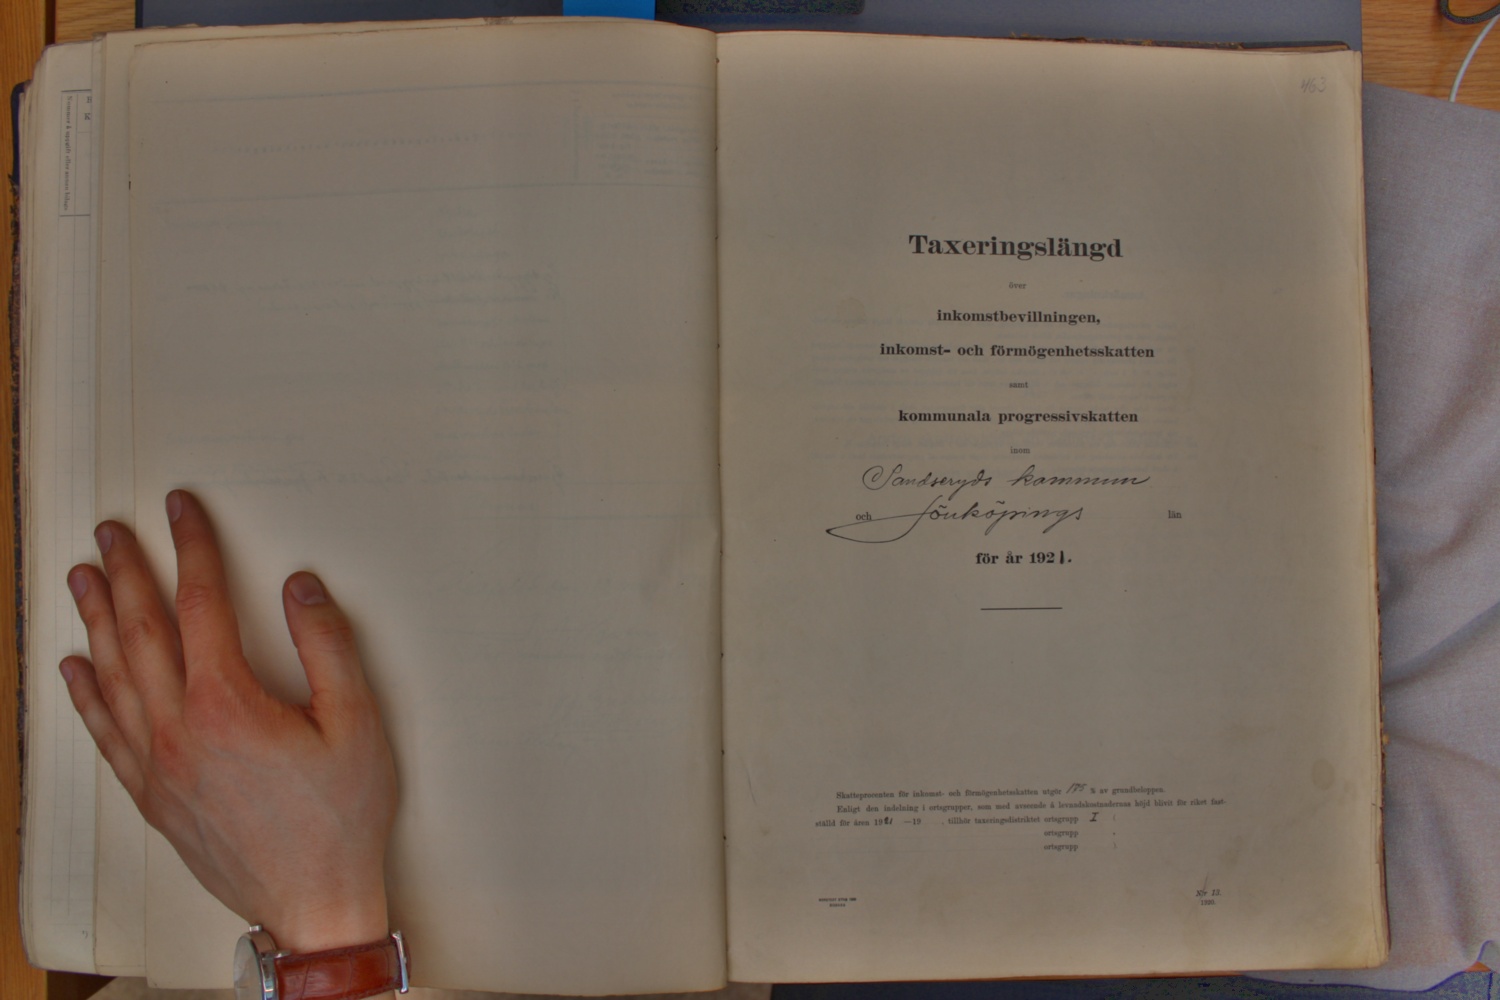 Nummer å uppgift eller annan bilaga
463
Taxeringslängd
över
inkomstbevillningen,
inkomst- och förmögenhetsskatten
samt
kommunala progressivskatten
inom
Sandseryds kommun
och Jönköpings län
för år 1921.
Skatteprocenten för inkomst- och förmögenhetsskatten utgör 175 % av grundbeloppen.
Enligt den indelning i ortsgrupper, som med avseende å levnadskostnadernas höjd blivit för riket fast-
ställd för åren 1921 —19 , tillhör taxeringsdistriktet ortsgrupp I
ortsgrupp
ortsgrupp
N:r 13.
1920.